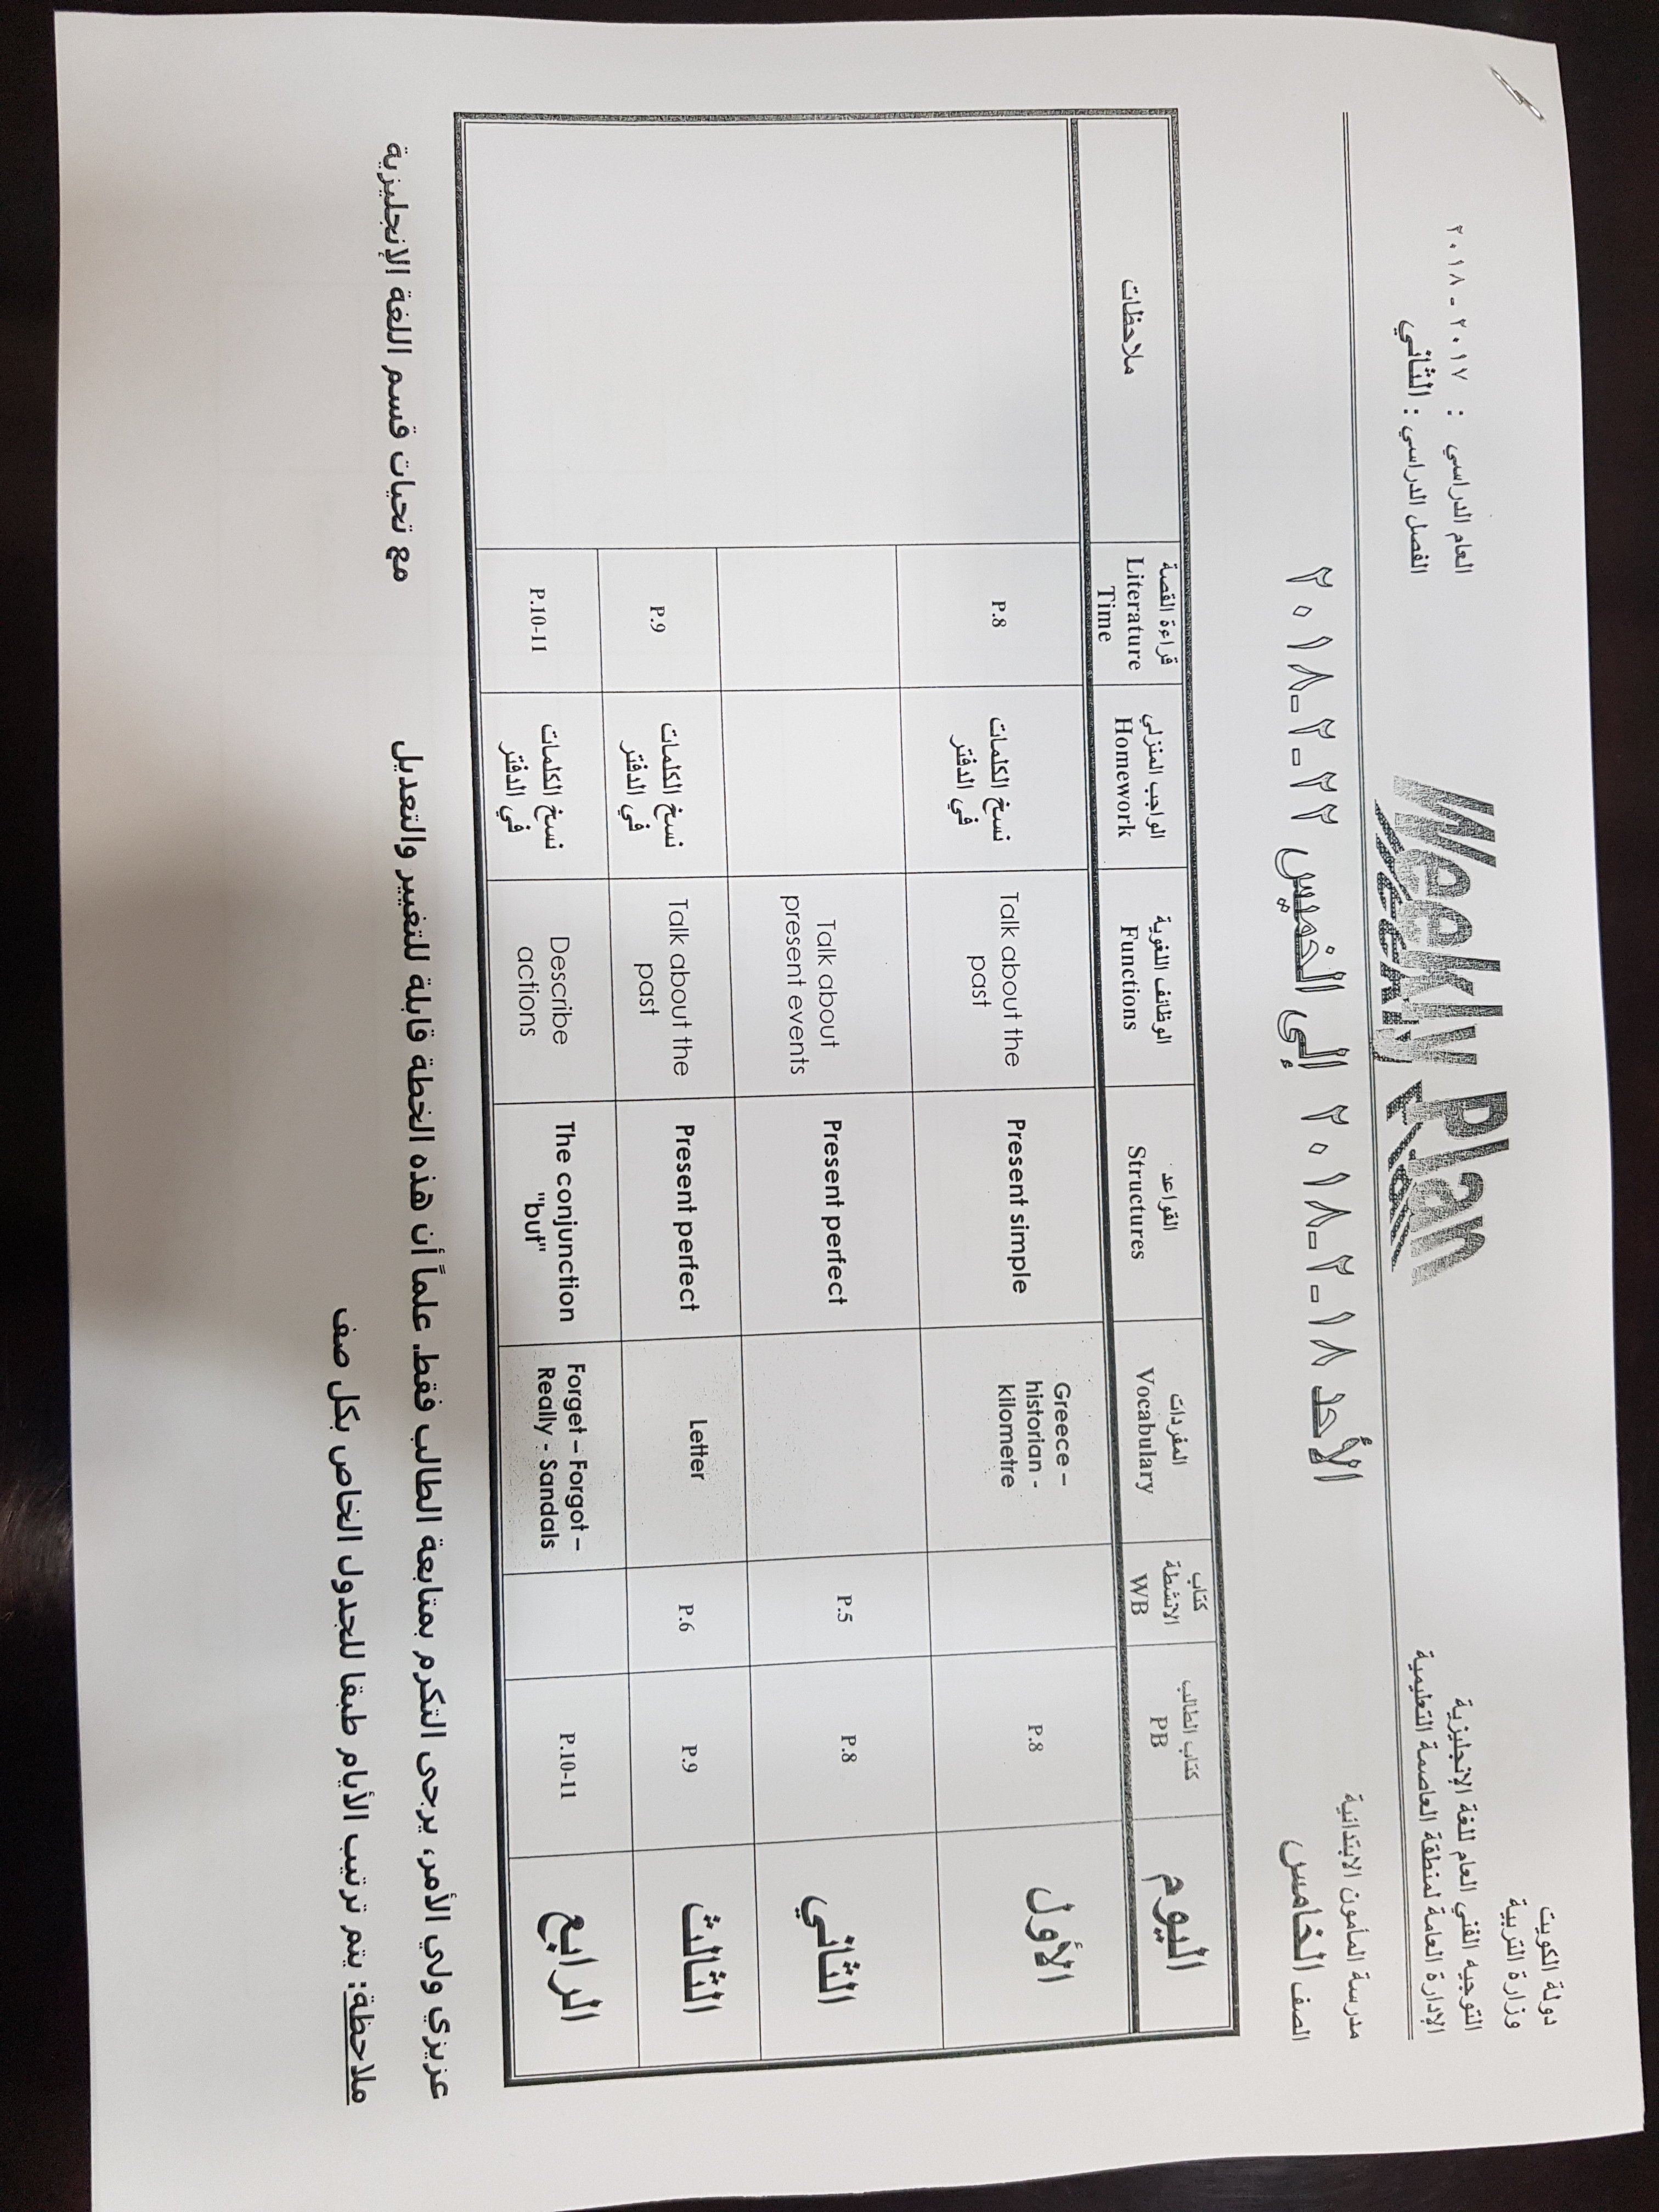 دولة الكويت
وزارة التربية
التوجيه الفني العام للغة الإنجليزية
الإدارة العامة لمنطقة العاصمة التعليمية
Weekly Plan
العام الدراسي : ٢٠١٧ - ٢٠١٨
الفصل الدراسي : الثاني
مدرسة المأمون الابتدائية
الصف الخامس
الأحد ١٨-٢-٢٠١٨ إلى الخميس ٢٢-٢-٢٠١٨
اليوم
كتاب الطالب
PB
كتاب
الانشطة
WB
المفردات
Vocabulary
القواعد
Structures
الوظائف اللغوية
Functions
الواجب المنزلي
Homework
قراءة القصة
Literature
Time
ملاحظات
الأول
P.8
Greece –
historian -
kilometre
Present simple
Talk about the
past
نسخ الكلمات
في الدفتر
P.8
الثاني
P.8
P.5
Present perfect
Talk about
present events
الثالث
P.9
P.6
Letter
Present perfect
Talk about the
past
نسخ الكلمات
في الدفتر
P.9
الرابع
P.10-11
Forget – Forgot –
Really - Sandals
The conjunction
"but"
Describe
actions
نسخ الكلمات
في الدفتر
P.10-11
عزيزي ولي الأمر، يرجى التكرم بمتابعة الطالب فقط. علماً أن هذه الخطة قابلة للتغيير والتعديل مع تحيات قسم اللغة الإنجليزية
ملاحظة: يتم ترتيب الأيام طبقا للجدول الخاص بكل صف